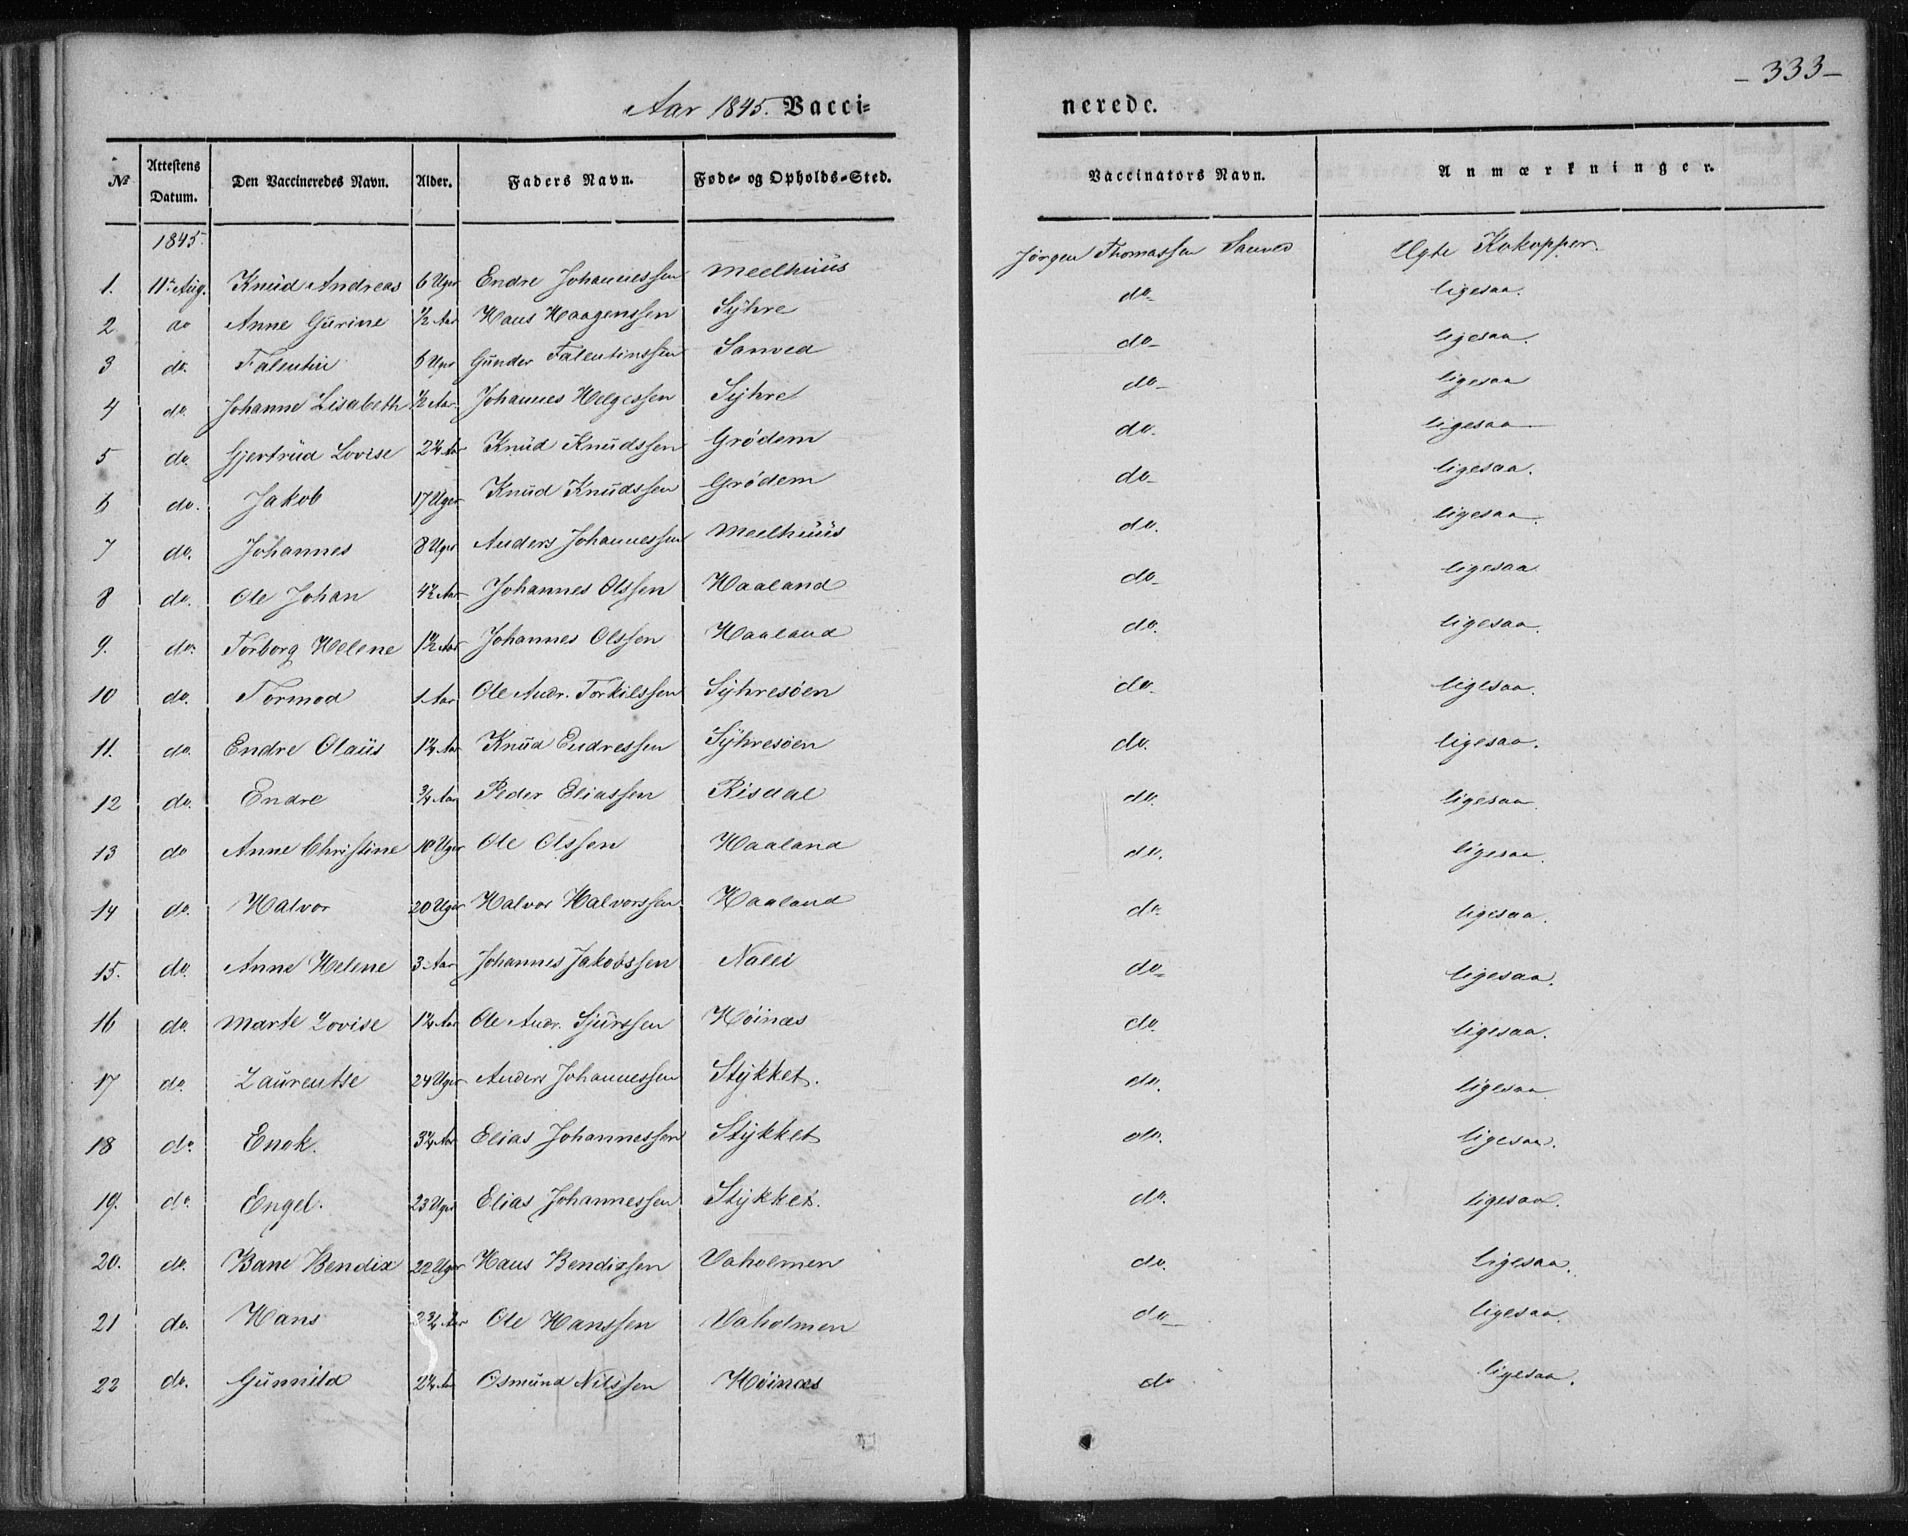 - 333 -
Aar 1845. Vacci= nerede.
№ Attestens Datum. Den Vaccineredes Navn. Alder. Faders Navn. Føde- og Opholds-Sted. Vaccinators Navn. Anmærkninger.
1845.
1. 11te Aug. Knud Andreas 6 Uger Endre Johannessen Meelhuus Jørgen Thomassen Sanved Ægte Kokopper.
2 do Anne Gurine ½ Aar Hans Haagenssen Syhre do- ligesaa.
3 do. Falentin 6 Uger Gunder Falentinssen Sanved do- ligesaa.
4 do. Johanne Lisabeth ½ Aar. Johannes Helgessen Syhre do- ligesaa
5 do. Gjertrud Lovise 2¼ Aar Knud Knudssen Grødem do. ligesaa
6 do. Jakob 17 Uger Knud Knudssen Grødem do- ligesaa.
7 do. Johannes 8 Uger Anders Johannessen Meelhuus do. ligesaa.
8 do. Ole Johan 4½ Aar Johannes Olssen Haaland do- ligesaa
9. do. Torborg Helene 1½ Aar Johannes Olssen Haaland do. ligesaa.
10 do. Tormod 1 Aar Ole Andr. Torkilssen Syhresøen do- ligesaa.
11. do. Endre Olaus 1¼ Aar Knud Endressen Syhresøen do. ligesaa.
12 do. Endre ¾ Aar Peder Eliassen Risdal do. ligesaa.
13 do Anne Christine 10 Uger Ole Olssen Haaland do. ligesaa.
14 do. Halvor 20 Uger Halvor Halvorssen Haaland do. ligesaa.
15. do. Anne Helene 3 Aar Johannes Jakobssen Nalei do- ligesaa.
16 do. Marte Lovise 1¼ Aar Ole Andr. Sjurssen Høinæs do. ligesaa.
17 do. Laurentse 24 Uger Anders Johannessen Stykket. do. ligesaa.
18 do. Enok. 3¼ Aar Elias Johannessen Stykket do. ligesaa.
19. do. Engel. 23 Uger Elias Johannessen Stykket. do. ligesaa.
20. do. Bane Bendix 22 Uger Hans Bendixsen Vaholmen do. ligesaa.
21 do. Hans ¾ Aar Ole Hanssen Vaholmen do- ligesaa.
22 do. Gunnild 2¼ Aar Osmund Nilssen Høinæs do ligesaa.